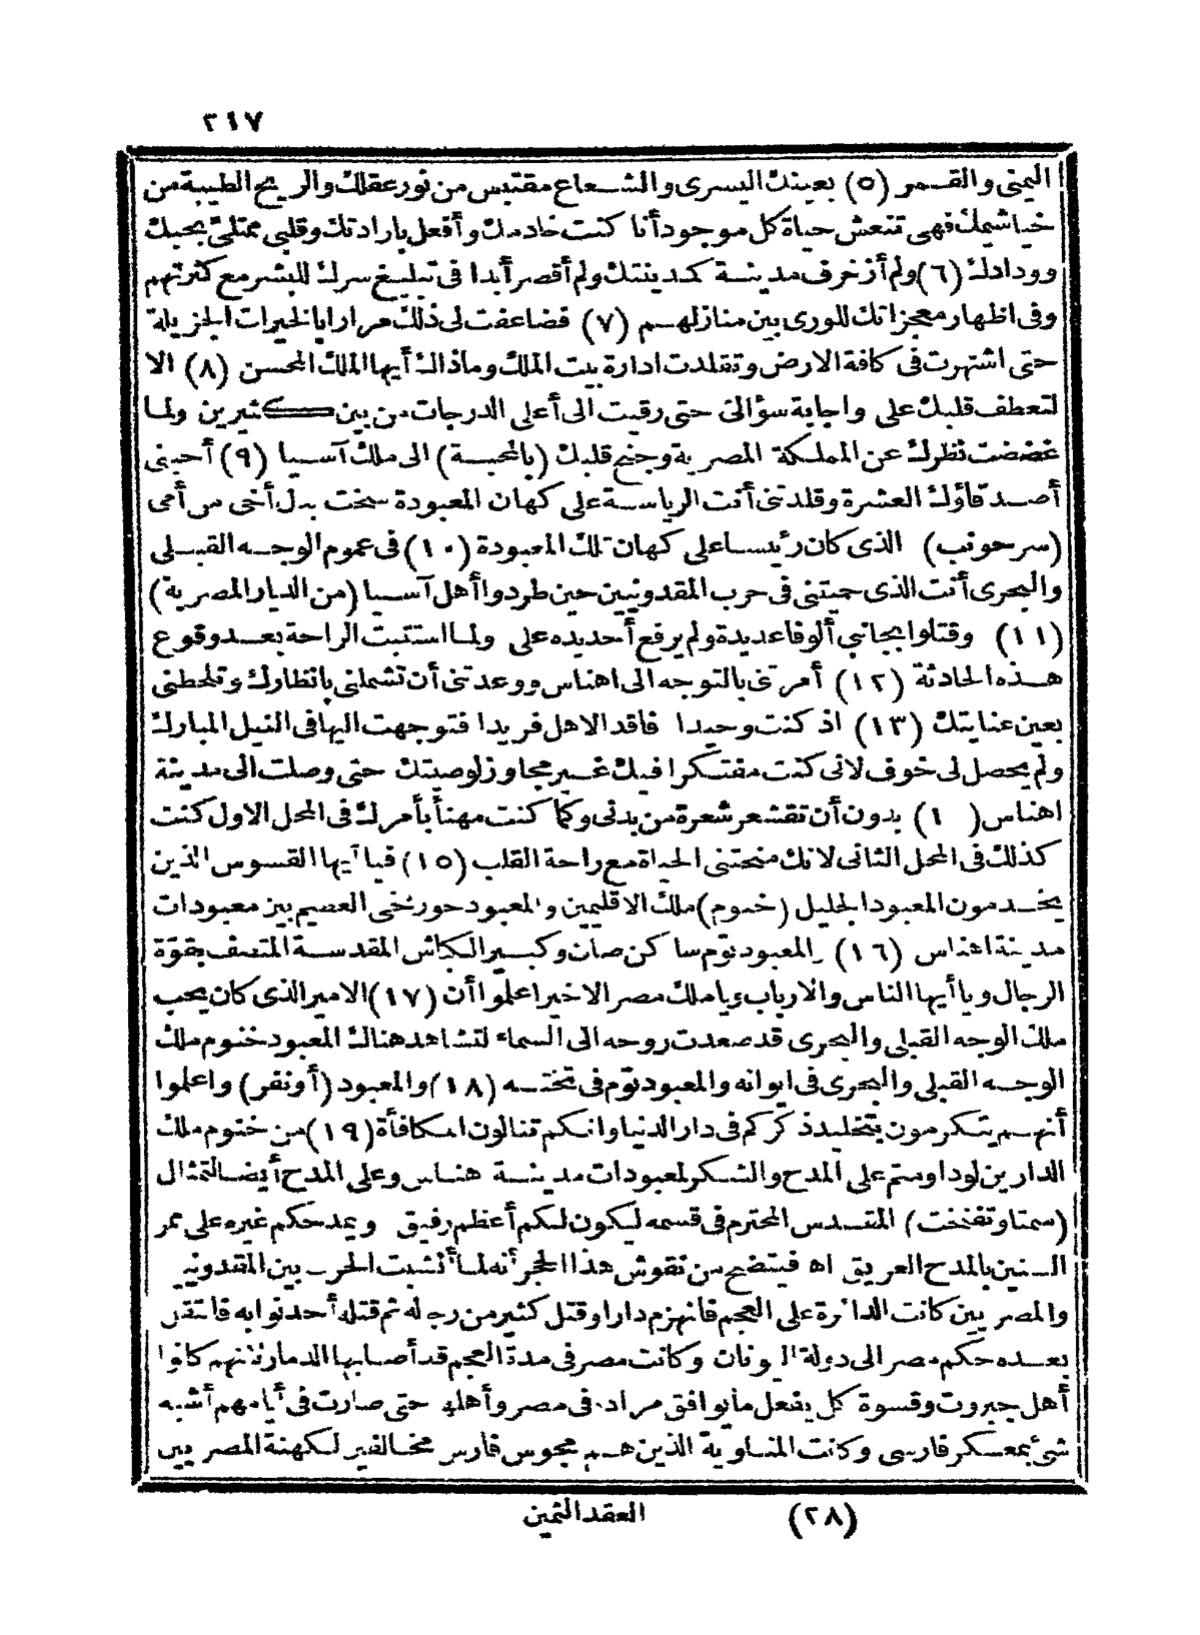 ٢١٧
اليمنى والقمر (٥) بعينك اليسرى والشعاع مقتبس من نور عقلك والريح الطيبة من
خياشيمك فهى تنعش حياة كل موجود أنا كنت خادمك وأفعل بارادتك وقلبى ممتلئ بحبك
وودادك (٦) ولم أزخرف مدينة كمدينتك ولم أقصر أبدا فى تبليغ سرك للبشر مع كثرتهم
وفى اظهار معجزاتك للورى بين منازلهم (٧) فضاعفت لى ذلك مرارا بالخيرات الجزيلة
حتى اشتهرت فى كافة الارض وتقلدت ادارة بيت الملك وماذاك أيها الملك المحسن (٨) الا
لتعطف قلبك على واجابة سؤالى حتى رقيت الى أعلى الدرجات من بين كثيرين ولما
غضضت نظرك عن المملكة المصرية وجنح قلبك (بالمحبة) الى ملك آسيا (٩) أحبنى
أصدقاؤك العشرة وقلدتنى أنت الرياسة على كهان المعبودة سخت بدل أخى من أمى
(سرحوتب) الذى كان رئيسا على كهان تلك المعبودة (١٠) فى عموم الوجه القبلى
والبحرى أنت الذى حميتنى فى حرب المقدونيين حين طردوا أهل آسيا (من الديار المصرية)
(١١) وقتلوا بجانبى ألوفا عديدة ولم يرفع أحد يده على ولما استتبت الراحة بعد وقوع
هذه الحادثة (١٢) أمرتنى بالتوجه الى اهناس ووعدتنى أن تشملنى بانظارك وتلحظنى
بعين عنايتك (١٣) اذ كنت وحيدا فاقد الاهل فريدا فتوجهت اليها فى النيل المبارك
ولم يحصل لى خوف لانى كنت مفتكرا فيك غير مجاوز لوصيتك حتى وصلت الى مدينة
اهناس( ١) بدون أن تقشعر شعرة من بدنى وكما كنت مهنأ بأمرك فى المحل الاول كنت
كذلك فى المحل الثانى لانك منحتنى الحياة مع راحة القلب (١٥) فيا أيها القسوس الذين
يخدمون المعبود الجليل (خنوم) ملك الاقليمين والمعبود حورخى العصيم بين معبودات
مدينة اهناس (١٦) والمعبود توم ساكن صان وكبير الكباش المقدسة المتصف بقوّة
الرجال ويا أيها الناس والارباب ويا ملك مصر الاخير اعلموا أن (١٧) الامير الذى كان يحب
ملك الوجه القبلى والبحرى قد صعدت روحه الى السماء لتشاهد هناك المعبود خنوم ملك
الوجه القبلى والبحرى فى ايوانه والمعبود توم فى تختـه (١٨) والمعبود (أونفر) واعلموا
أنهم يتكرمون بتخليد ذكركم فى دار الدنيا وانكم تنالون المكافأة (١٩) من خنوم ملك
الدارين لو داومتم على المدح والشكر لمعبودات مدينة هناس وعلى المدح أيضا لتمثال
(سمتاوتفنخت) المقدس المحترم فى قسمه ليكون لكم أعظم رفيق ويمدحكم غيره على ممر
السنين بالمدح العريق اه فيتضح من نقوش هذا الحجر أنه لما أنشبت الحرب بين المقدونيين
والمصريين كانت الدائرة على العجم فانهزم دارا وقتل كثير من رجاله ثم قتله أحد نوابه فانتقل
بعده حكم مصر الى دولة اليونان وكانت مصر فى مدة العجم قد أصابها الدمار لانهم كانوا
أهل جبروت وقسوة كل يفعل ما يوافق مراده فى مصر وأهلها حتى صارت فى أيامهم أشبه
شئ بمعسكر فارسى وكانت المناوية الذين هم مجوس فارس مخالفين لكهنة المصريين
(٢٨) العقد الثمين